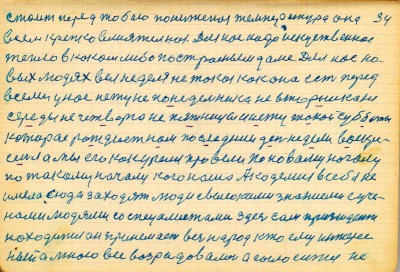 стоит перед тобою пониженая температура она 34
всем крепко влиятелная. Для нас надо искуственное
тепло в каком либо построеным даме Для нас но-
вых людях вся неделя не такая как она есть перед
всеми у нас нету не понеделника не вторника и
середы не четверга не пятницы и нету такой субботы
которая рождает нам последний ден недели воскре-
сения мы его как куреш провели по новаму началу
по такому началу кого наша Академия в себе не
имела сюда заходят люди с высоким знанием с уче-
ными людями со специалистами здесь сам президент
находится он принемает вся народ кто ему интерес-
ный а много все возрадовалис а село сижу не